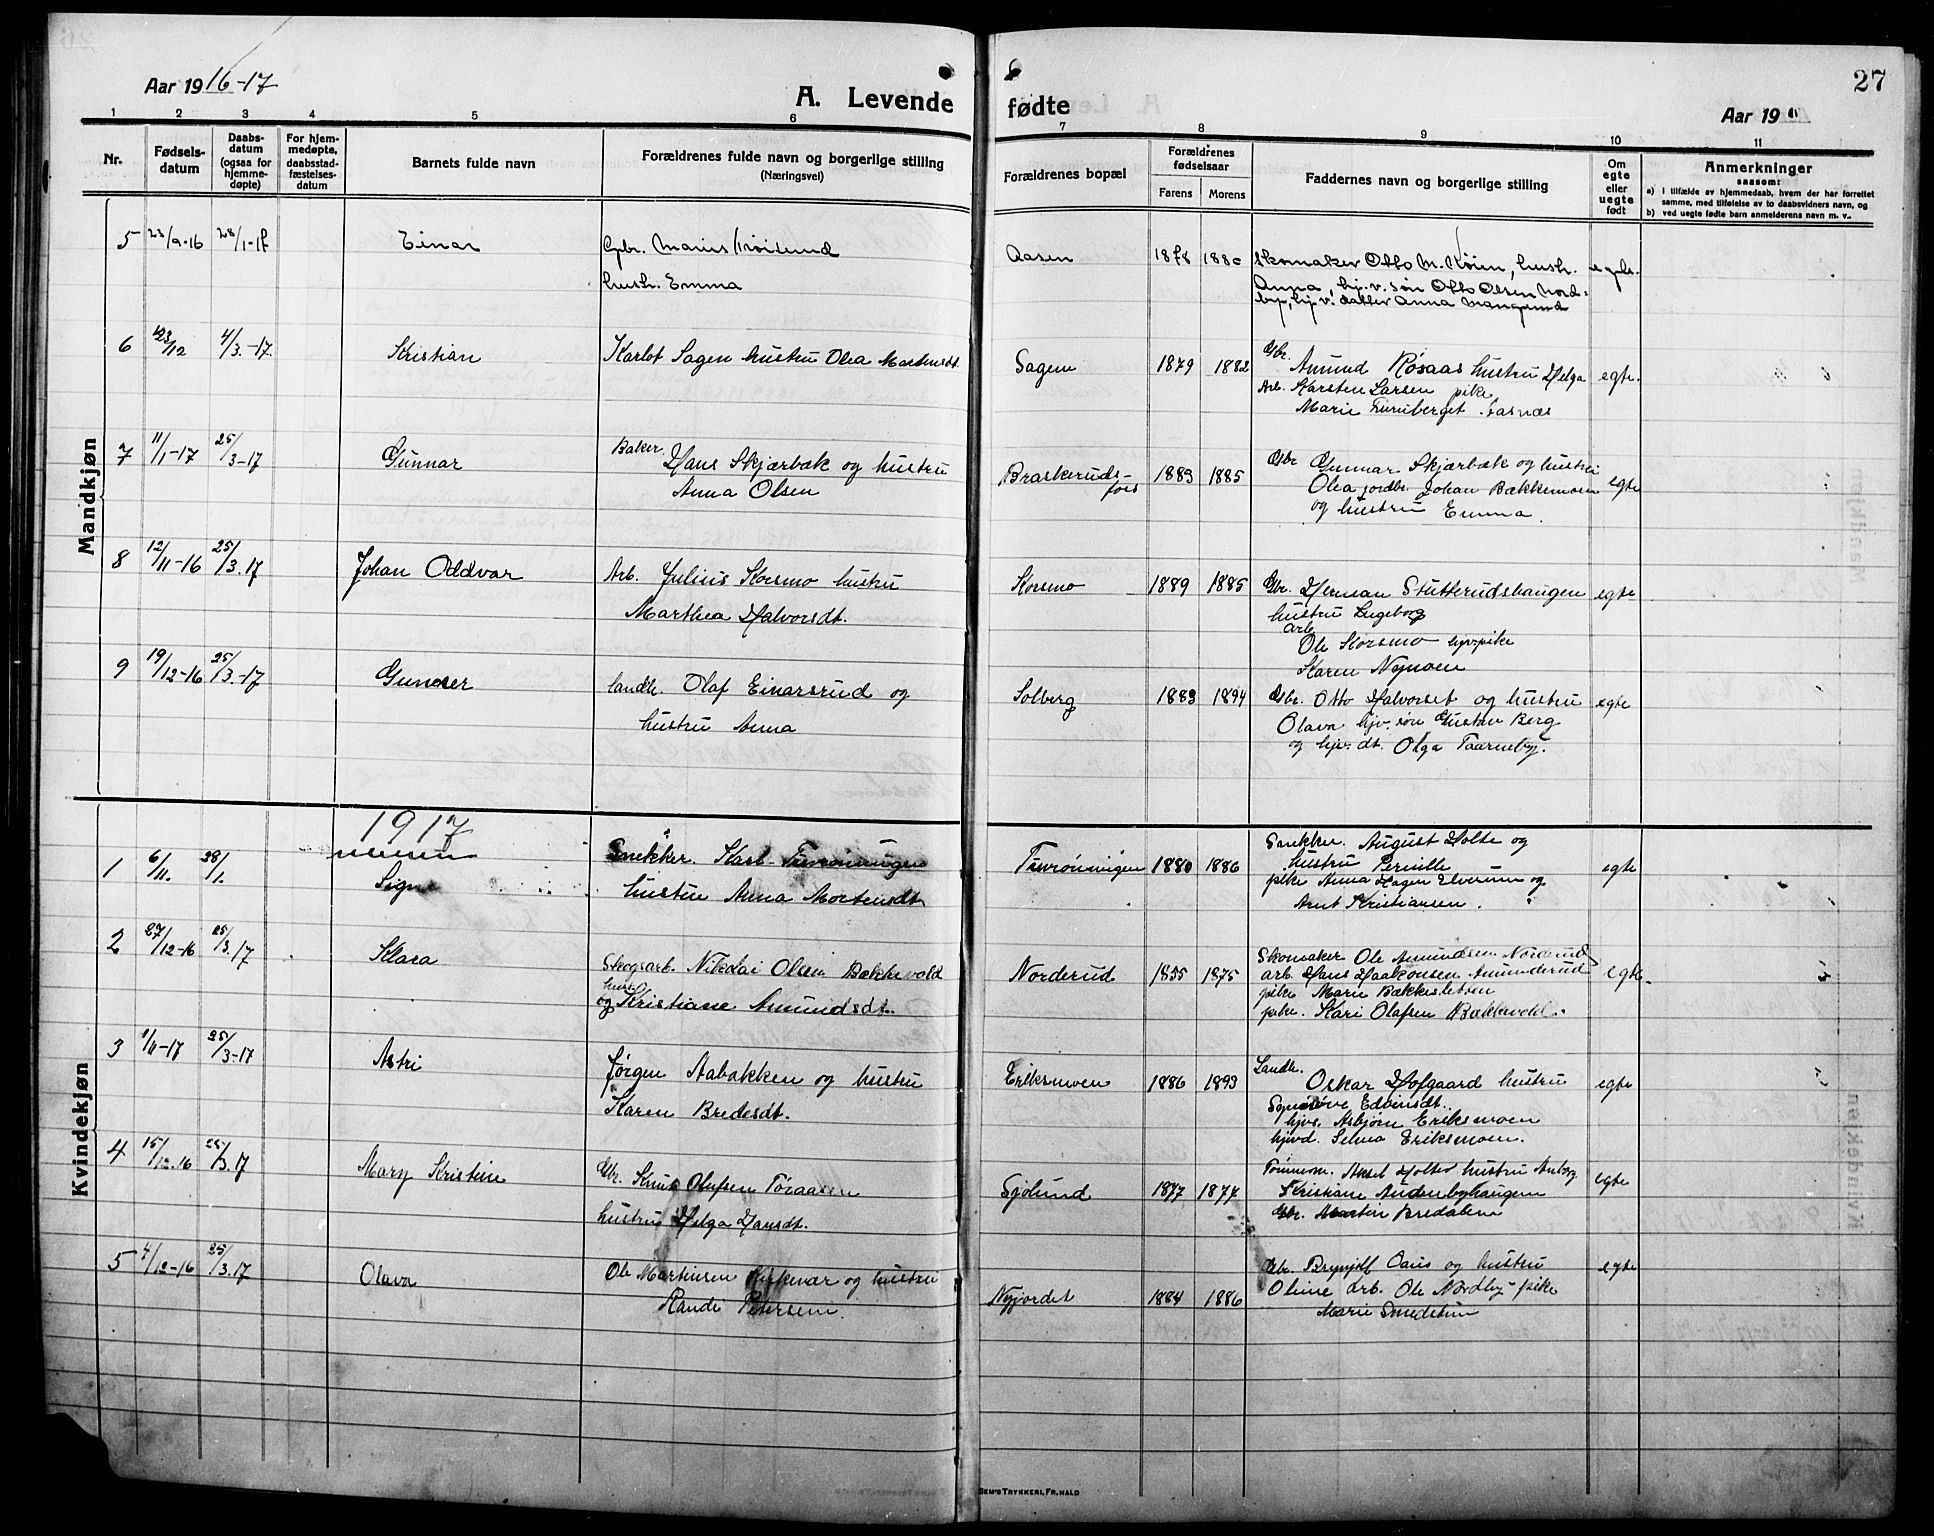 27
Aar 1916-17
A. Levende fødte
Aar 19
1 2 3 4 5 6 7 8 9 10 11
Nr.
Fødsels-
datum
Daabs-
datum
(ogsaa for
hjemme-
døpte)
For hjem-
medøpte,
daabsstad-
fæstelses-
datum
Barnets fulde navn
Forældrenes fulde navn og borgerlige stilling
(Næringsvei)
Forældrenes bopæl
Forældrenes
fødselsaar
Farens Morens
Faddernes navn og borgerlige stilling
Om
egte
eller
uegte
født
Anmerkninger
saasom:
a) i tilfælde av hjemmedaab, hvem der har forrettet
samme, med tilføielse av to daabsvidners navn, og
b) ved uegte fødte barn anmelderens navn m. v.
Mandkjøn
5 23/9-16 28/1-17 Einar
Gbr. Marius
hustr. Emma
Aasen 1878 1880
Skomaker Otto M. Køien, hustr.
Anna, hj.v. søn Otto Olsen Nord-
by, hj.v. datter Anna Mangrud
6 /12 4/3-17. Kristian
Karlot Sagen hustru Olea Martinsdt.
Sagen 1879 1882
Gbr. Amund Røsaas hustru Helga
Arb. Karsten Larsen pike
Marie Furuberget
egte.
7 11/1-17 25/3-17 Gunnar
Baker Hans Skjærbæk og hustru
Anna Olsen
Braskeruds-
fors 1883 1885
Gbr Gunnar Skjærbæk og hustru
Olea jordbr. Johan Bækkemoen
og hustru Emma.
egte
8 12/11-16 25/3.17 Johan Oddvar
Arb. Julius Korsmo hustru
Marthea Halvorsdt.
Korsmo 1889 1885
Gbr. Herman Stutterudshaugen
hustru Ingeborg
arb.
Ole Korsmo hjvpike
Karen Nymoen
egte
9 19/12-16 25/3-17 Gunner
landh. Olaf Einarsrud og
hustru Anna
Solberg 1883 1894
Gbr. Otto Halvorset og hustru
Olava hjv. søn Gustav Berg
og hjv. dt. Olga Taarneby.
egte
Kvindekjøn
1917
1 6/11. 28/1. Signe
Snekker. Karl Furrønningen
hustru Anna Mortensdt.
Furrønningen 1880 1886
Snekker. August Holte og
hustru Pernille
pike Anna Hagen Elverum og
Arnt Kristiansen.
egte
2 27/12-16 25/3.17 Klara
Skogsarb. Nikolai Olsen Bækkevold
og hustr. Kristiane Amundsdt.
Norderud 1875
Skomaker Ole Amundsen Norderud
arb. Hans Haakonsen Amunderud
pike Marie Bækkesletten
pike. Kari Olafsen Bækkevold.
egte
3 25/3-17 Astri
Jørgen Aabakken og hustru
Karen Bredesdt.
Eriksmoen 1886 1893
Landh.
Oskar Hofgaard hustru
Synnøve Edvinsdt.
hjvs. Asbjørn Eriksmoen
hjvd. Selma Eriksmoen.
egte
4 15/12.16 25/3.17 Mary Kristine
Gbr. Knut Olafsen Toraasen
hustru Helga Hansdt.
Sjølund 1877 1877
Tømmerm. Aksel Holter hustru
Kristiane Audenbyhaugen
Gbr. Morten Bredalen
egte
5 4/12-16 25/3.17 Olava
Ole Martinsen og hustru
Randi Petersen
Nyjordet 1884 1886
Gbr. Brynjolf og hustru
Oline arb. Ole Nordby pike
Marie Smedstun
egte
BEM'S TRYKKERI, FR.HALD